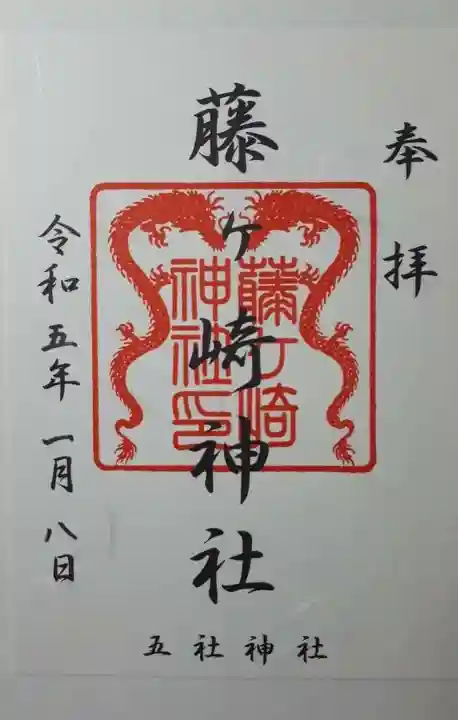 奉拝
藤ヶ崎神社
藤ケ崎
神社印
令和五年一月八日
五社神社